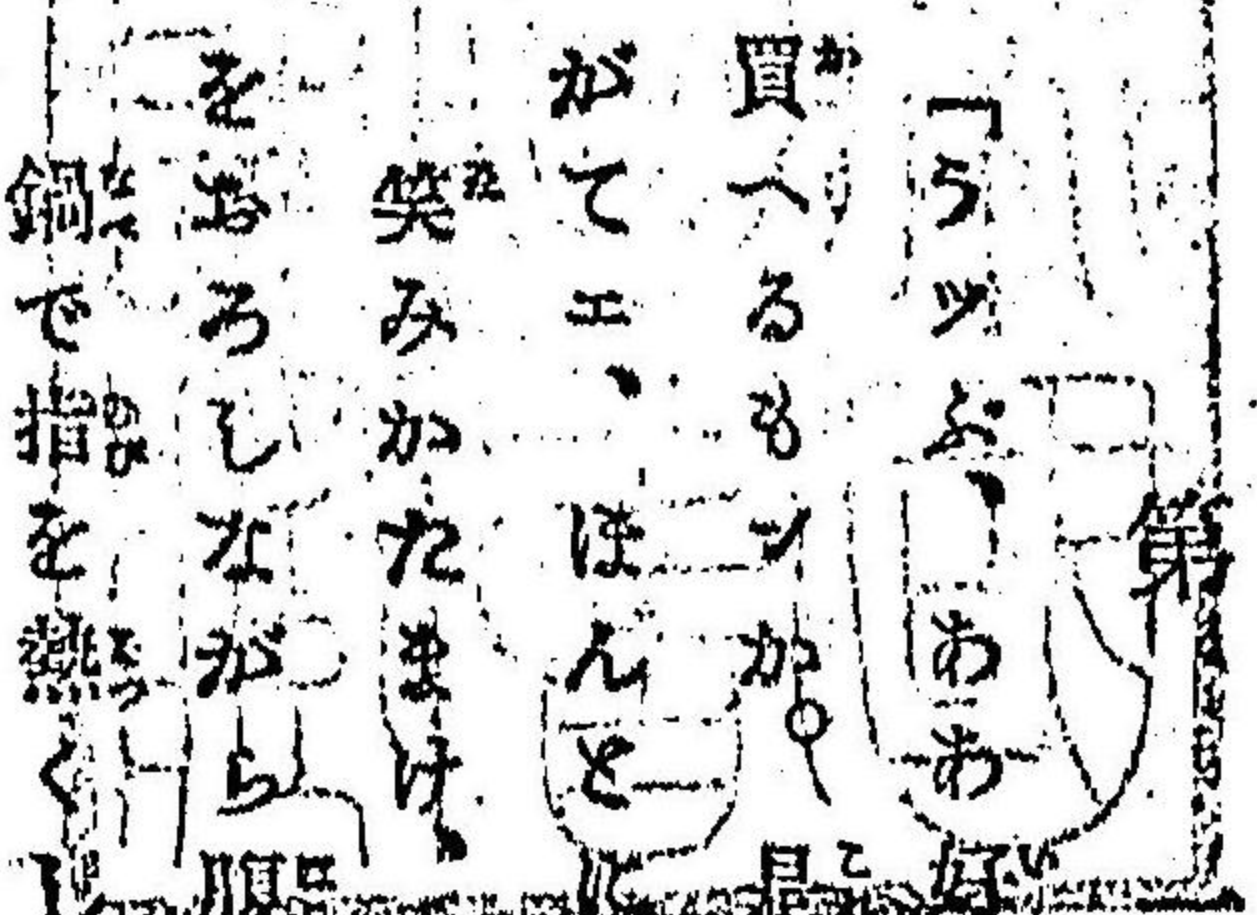 第
「うツぷ、ああ
買へるもンか。
がてエ、ほんと
笑みかたまけ、
をおろしながら
鍋で指を熱く